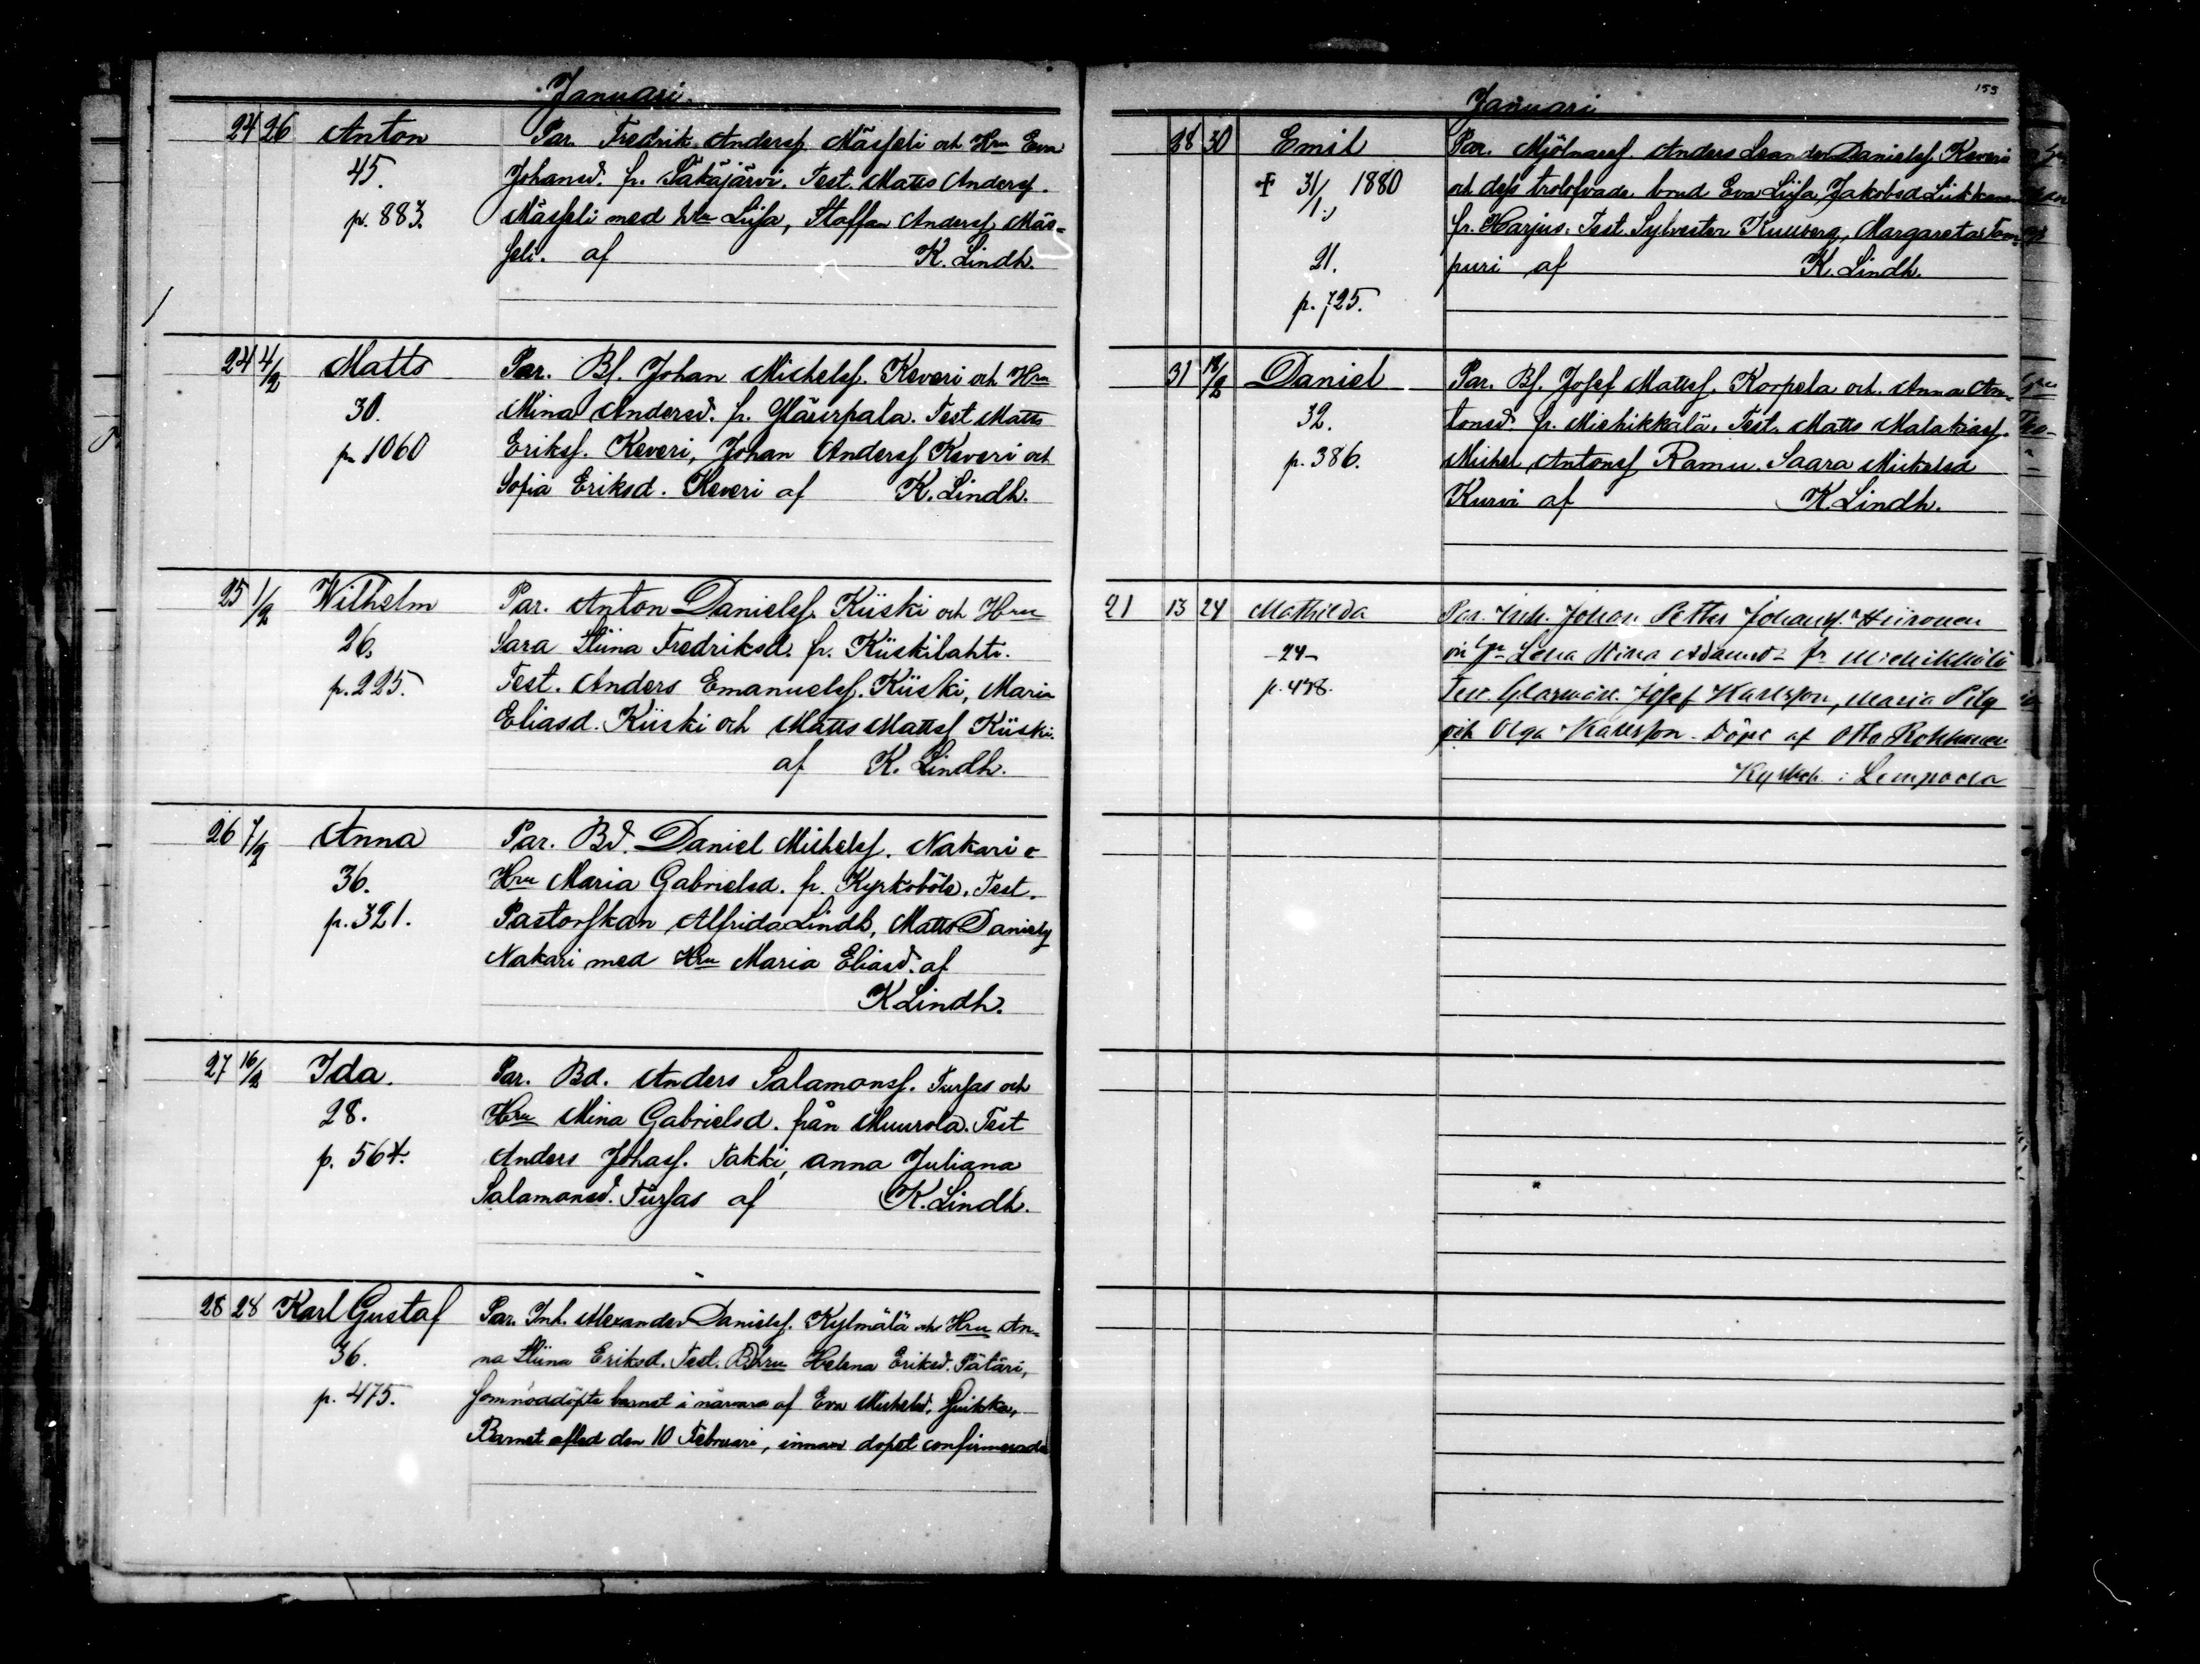 Januari.
24 26 Anton Par. Fredrik Andersf. Mässeli och Hru Eva
45. Johansd. fr. Säkäjärvi. Test. Matts Andersf.
p. 883. Mässeli med Hru Liisa, Staffan Andersf. Mäs-
seli. af K. Lindh.
24 4/2 Matts Par. Bf. Johan Michelsf. Keveri och Hru
30. Mina Andersd. fr. Yläurpala. Test Matts
p. 1060 Eriksf. Keveri, Johan Andersf Keveri och
Sofia Eriksd. Keveri af K. Lindh.
25 1/2 Wilhelm Par. Anton Danielsf. Kiiski och Hru
26. Sara Stiina Fredriksd. fr. Kiiskilahti.
p. 225. Test. Anders Emanuelsf. Kiiski, Maria
Eliasd. Kiiski och Matts Mattsf Kiiski.
af K. Lindh.
26 7/2 Anna Par. Bd. Daniel Michelsf. Nakari o
36. Hru Maria Gabrielsd. fr. Kyrkoböle. Test.
p. 321. Pastorskan Alfrida Lindh, Matts Danielsf
Nakari med Hru Maria Eliasd. af
K Lindh.
27 16/2 Ida. Par. Bd. Anders Salamonsf. Turfas och
28. Hru Mina Gabrielsd. från Muurola. Test
p. 564. Anders Johasf. Takki, anna Juliana
Salamonsd. Turfas af K. Lindh.
28 28 Karl Gustaf Par. Inh. Alexander Danielsf. Kylmälä och Hru An-
36. na Stiina Eriksd. Test. Bdhru Helena Eriksd. Pätäri,
p. 475. som nöddöpte barnet i närvara af Eva Michelsd.
Barnet afled den 10 Februari, innan dopet confirmerades
153
Januari
28 30 Emil Par. Mjölnaresf. Anders Leander Danielsf. Keveri
✝ 31/1 1880 och dess trolofvade brud Eva Liisa Jakobsd Liikkanen
fr. Harjus. Test. Sylvester Kuusberg, Margareta Tam-
21. puri af K. Lindh.
p. 725.
31 18/2 Daniel Par. Bf. Josef Mattsf. Korpela och Anna An-
32. tonsd. fr. Miehikkälä. Test. Matts Malakiasf.
p. 386. Michel Antonsf Ramu. Saara Mickelsd
Kurvi af K Lindh.
21 13 24 Mathilda Par. Inh. Johan Petter Johansf. Hiironen
-24- Lena Stina Adamsd fr Miehikkälä
p. 478. Test. Josef Karlsson, Maria
och Olga Karlsson. Döpt af Otto Rokkanen
i Lempaala